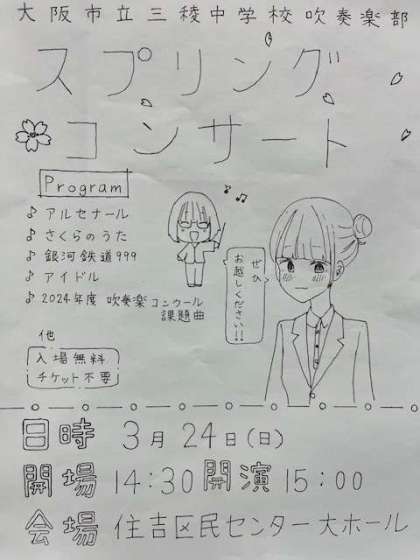 大阪市立三稜中学校吹奏楽部
スプリング
コンサート
Program
♪ アルセナール
♪ さくらのうた
♪ 銀河鉄道999
♪ アイドル
♪ 2024年度 吹奏楽コンクール
課題曲
他
ぜひ
お越しください!!
入場無料
チケット不要
日時 3月24日(日)
開場 14:30 開演 15:00
会場 住吉区民センター大ホール